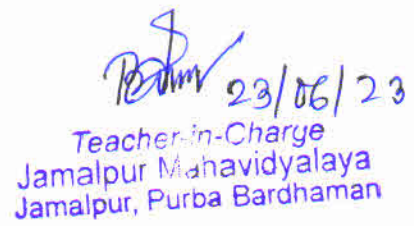 23/06/23
Teacher-in-Charge
Jamalpur Mahavidyalaya
Jamalpur, Purba Bardhaman